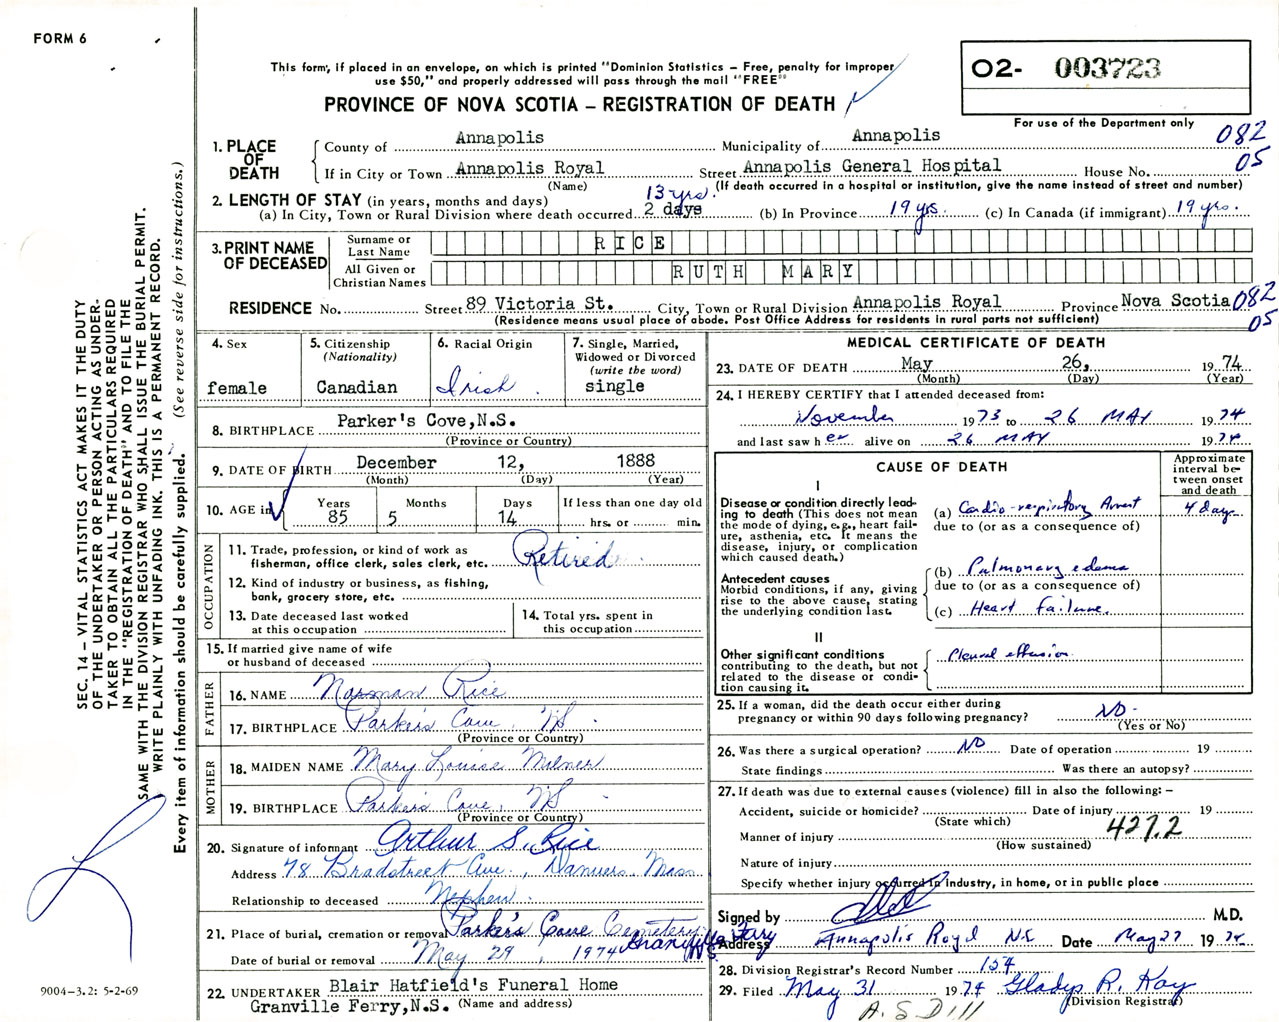 FORM 6
This form, if placed in an envelope, on which is printed "Dominion Statistics – Free, penalty for improper
use $50," and properly addressed will pass through the mail "FREE"
PROVINCE OF NOVA SCOTIA – REGISTRATION OF DEATH
O2- 003723
For use of the Department only
082
05
1. PLACE OF DEATH
County of Annapolis Municipality of Annapolis
If in City or Town Annapolis Royal Street Annapolis General Hospital House No.
(Name) (If death occurred in a hospital or institution, give the name instead of street and number)
2. LENGTH OF STAY (in years, months and days) 13 yrs.
(a) In City, Town or Rural Division where death occurred 2 days (b) In Province 19 yrs. (c) In Canada (if immigrant) 19 yrs.
3. PRINT NAME OF DECEASED
Surname or Last Name RICE
All Given or Christian Names RUTH MARY
RESIDENCE No. Street 89 Victoria St. City, Town or Rural Division Annapolis Royal Province Nova Scotia 082
05
(Residence means usual place of abode. Post Office Address for residents in rural parts not sufficient)
4. Sex
female
5. Citizenship
(Nationality)
Canadian
6. Racial Origin
Irish
7. Single, Married,
Widowed or Divorced
(write the word)
single
8. BIRTHPLACE Parker's Cove, N.S.
(Province or Country)
9. DATE OF BIRTH December 12, 1888
(Month) (Day) (Year)
10. AGE in
Years Months Days If less than one day old
85 5 14 hrs. or min.
OCCUPATION
11. Trade, profession, or kind of work as
fisherman, office clerk, sales clerk, etc. Retired
12. Kind of industry or business, as fishing,
bank, grocery store, etc.
13. Date deceased last worked
at this occupation
14. Total yrs. spent in
this occupation
15. If married give name of wife
or husband of deceased
FATHER
16. NAME Norman Rice
17. BIRTHPLACE Parker's Cove, NS
(Province or Country)
MOTHER
18. MAIDEN NAME Mary Louise Milner
19. BIRTHPLACE Parker's Cove, NS
(Province or Country)
20. Signature of informant Arthur S. Rice
Address 78 Bradstreet Ave., Danvers Mass
Relationship to deceased Nephew
21. Place of burial, cremation or removal Parker's Cove Cemetery Granville Ferry NS
Date of burial or removal May 29, 1974
22. UNDERTAKER Blair Hatfield's Funeral Home
Granville Ferry, N.S. (Name and address)
MEDICAL CERTIFICATE OF DEATH
23. DATE OF DEATH May 26, 1974
(Month) (Day) (Year)
24. I HEREBY CERTIFY that I attended deceased from:
November 1973 to 26 MAY 1974
and last saw her alive on 26 MAY 1974
CAUSE OF DEATH
Approximate
interval be-
tween onset
and death
I
Disease or condition directly lead-
ing to death (This does not mean
the mode of dying, e.g., heart fail-
ure, asthenia, etc. It means the
disease, injury, or complication
which caused death.)
(a) Cardio-respiratory Arrest 4 days
due to (or as a consequence of)
Antecedent causes
Morbid conditions, if any, giving
rise to the above cause, stating
the underlying condition last.
(b) Pulmonary edema
due to (or as a consequence of)
(c) Heart Failure
II
Other significant conditions
contributing to the death, but not
related to the disease or condi-
tion causing it.
Pleural effusion
25. If a woman, did the death occur either during
pregnancy or within 90 days following pregnancy? NO
(Yes or No)
26. Was there a surgical operation? NO Date of operation 19
State findings Was there an autopsy?
27. If death was due to external causes (violence) fill in also the following: –
Accident, suicide or homicide? Date of injury 19
(State which) 427.2
Manner of injury
(How sustained)
Nature of injury
Specify whether injury occurred in industry, in home, or in public place
Signed by M.D.
Address Annapolis Royal N.S. Date May 27 1974
28. Division Registrar's Record Number 154
29. Filed May 31 1974 Gladys R. Kay
(Division Registrar)
A. S Dill
SEC. 14 – VITAL STATISTICS ACT MAKES IT THE DUTY
OF THE UNDERTAKER OR PERSON ACTING AS UNDER-
TAKER TO OBTAIN ALL THE PARTICULARS REQUIRED
IN THE "REGISTRATION OF DEATH" AND TO FILE THE
SAME WITH THE DIVISION REGISTRAR WHO SHALL ISSUE THE BURIAL PERMIT.
WRITE PLAINLY WITH UNFADING INK. THIS IS A PERMANENT RECORD.
Every item of information should be carefully supplied. (See reverse side for instructions.)
9004-3.2: 5-2-69